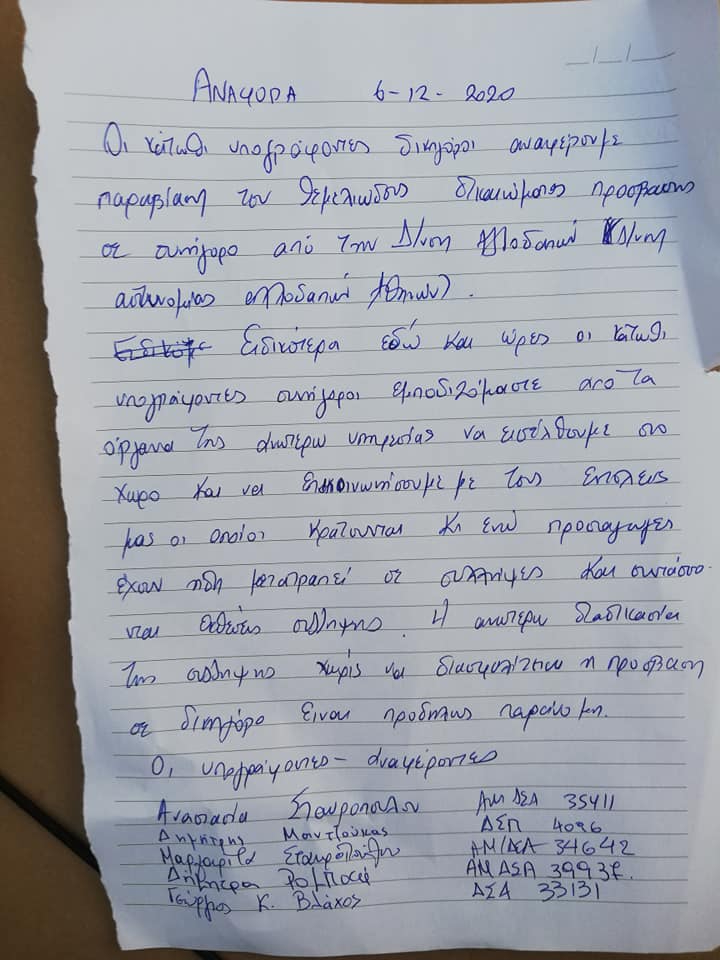 _/_/_
ΑΝΑΦΟΡΑ 6-12-2020
Οι κάτωθι υπογράφοντες δικηγόροι αναφέρουμε
παραβίαση του θεμελιώδους δικαιώματος πρόσβασης
σε συνήγορο από την Δ/νση Αλλοδαπών (Δ/νση
αστυνομίας αλλοδαπών Αθηνών).
Ειδικότερα εδώ και ώρες οι κάτωθι
υπογράφοντες συνήγοροι εμποδιζόμαστε από τα
όργανα της ανωτέρω υπηρεσίας να εισέλθουμε στο
χώρο και να επικοινωνήσουμε με τους εντολείς
μας οι οποίοι κρατούνται κι ενώ προσαγωγές
έχουν ήδη μετατραπεί σε συλλήψεις και συντάσσο-
νται εκθέσεις σύλληψης. Η ανωτέρω διαδικασία
της σύλληψης χωρίς να διασφαλίζεται η πρόσβαση
σε δικηγόρο είναι προδήλως παράνομη.
Οι υπογράφοντες - αναφέροντες
Αναστασία Σταυροπούλου ΑΜ ΔΣΑ 35411
Δημήτρης Μαντζούκας ΔΣΠ 4096
Μαργαρίτα Σταυροπούλου ΑΜ/ΔΣΑ 34642
Δήμητρα ΑΜ ΔΣΑ
Γιώργος Κ. Βλάχος ΔΣΑ 33131